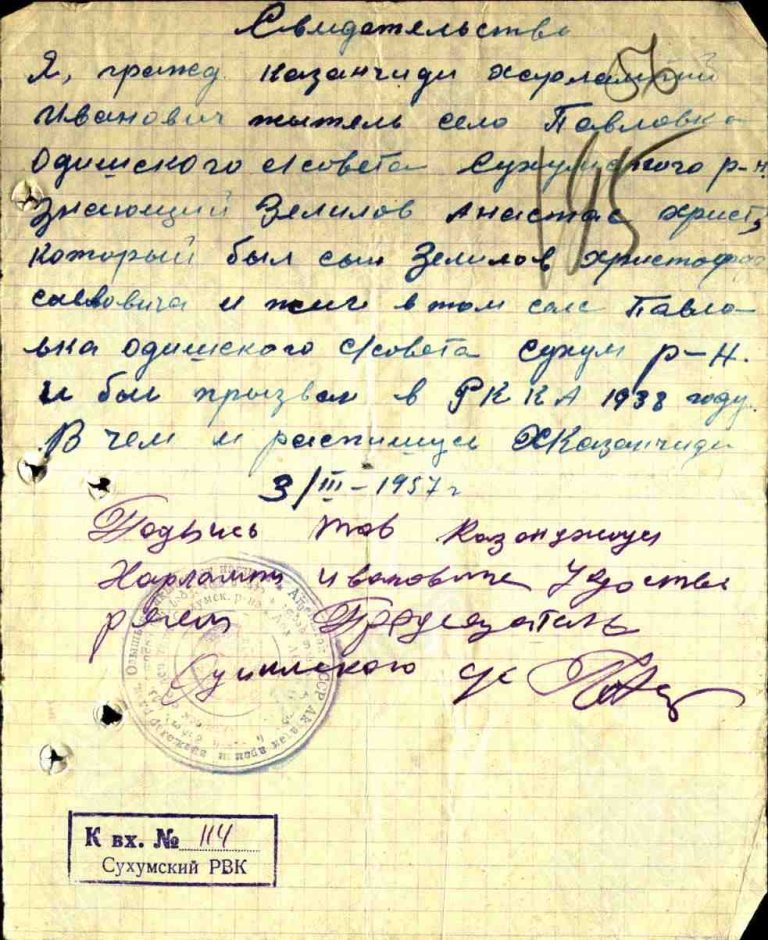 Свидетельство
56
Я, гражд. Казанчиди Харлампий
Иванович житель село Павловка
Одишского с/совета Сухумского р-н
145
Знающий Зелилов Анастас Христ
который был сын Зелилов Христофор
саввовича и жил в том селе Павло-
вка одишского с/совета Сухум р-н.
и был призван в РККА 1938 году.
В чем и распишусь ХКазанчиди
3/III-1957 г
Подпись тов Казанджиди
Харлампи Ивановича Удостве
ряем Председатель
Одишского с/с
К вх. № 114
Сухумский РВК